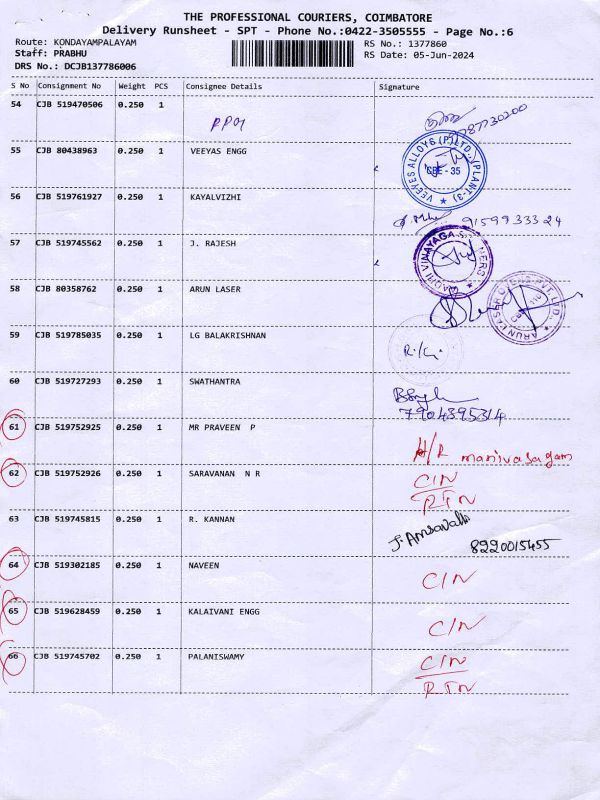 THE PROFESSIONAL COURIERS, COIMBATORE
Delivery Runsheet - SPT - Phone No.:0422-3505555 - Page No.:6
Route: KONDAYAMPALAYAM RS No.: 1377860
Staff: PRABHU RS Date: 05-Jun-2024
DRS No.: DCJB137786006
S No Consignment No Weight PCS Consignee Details Signature
54 CJB 519470506 0.250 1
PPOY
55 CJB 80438963 0.250 1 VEEYAS ENGG
VEEYES ALLOYS (P) LTD., (PLANT-3)
CBE - 35
56 CJB 519761927 0.250 1 KAYALVIZHI
9159933324
57 CJB 519745562 0.250 1 J. RAJESH
58 CJB 80358762 0.250 1 ARUN LASER
59 CJB 519785035 0.250 1 LG BALAKRISHNAN
60 CJB 519727293 0.250 1 SWATHANTRA
7904395314
61 CJB 519752925 0.250 1 MR PRAVEEN P
H/R manivasagam
62 CJB 519752926 0.250 1 SARAVANAN N R
CIN
RTN
63 CJB 519745815 0.250 1 R. KANNAN
J. Amsavalli
8220015455
64 CJB 519302185 0.250 1 NAVEEN
CIN
65 CJB 519628459 0.250 1 KALAIVANI ENGG
CIN
66 CJB 519745702 0.250 1 PALANISWAMY
CIN
RTN